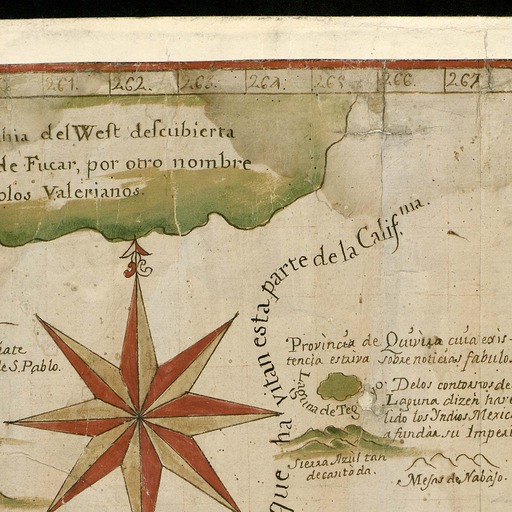 261. 262. 263. 264. 265 266. 267
hia del West descubierta
de Fucar, por otro nombre
olos Valerianos.
que ha vitan esta parte de la Calif.nia.
hate
de S. Pablo.
Provincia de Quivira cuia exis-
tencia estriva sobre noticias fabulos
Laguna de Tegyo.
De los contornos de
Laguna dizen have
lido los Yndios Mexic
a fundar su Imperi
Sierra Azul tan
decantada.
Mesas de Nabajo.